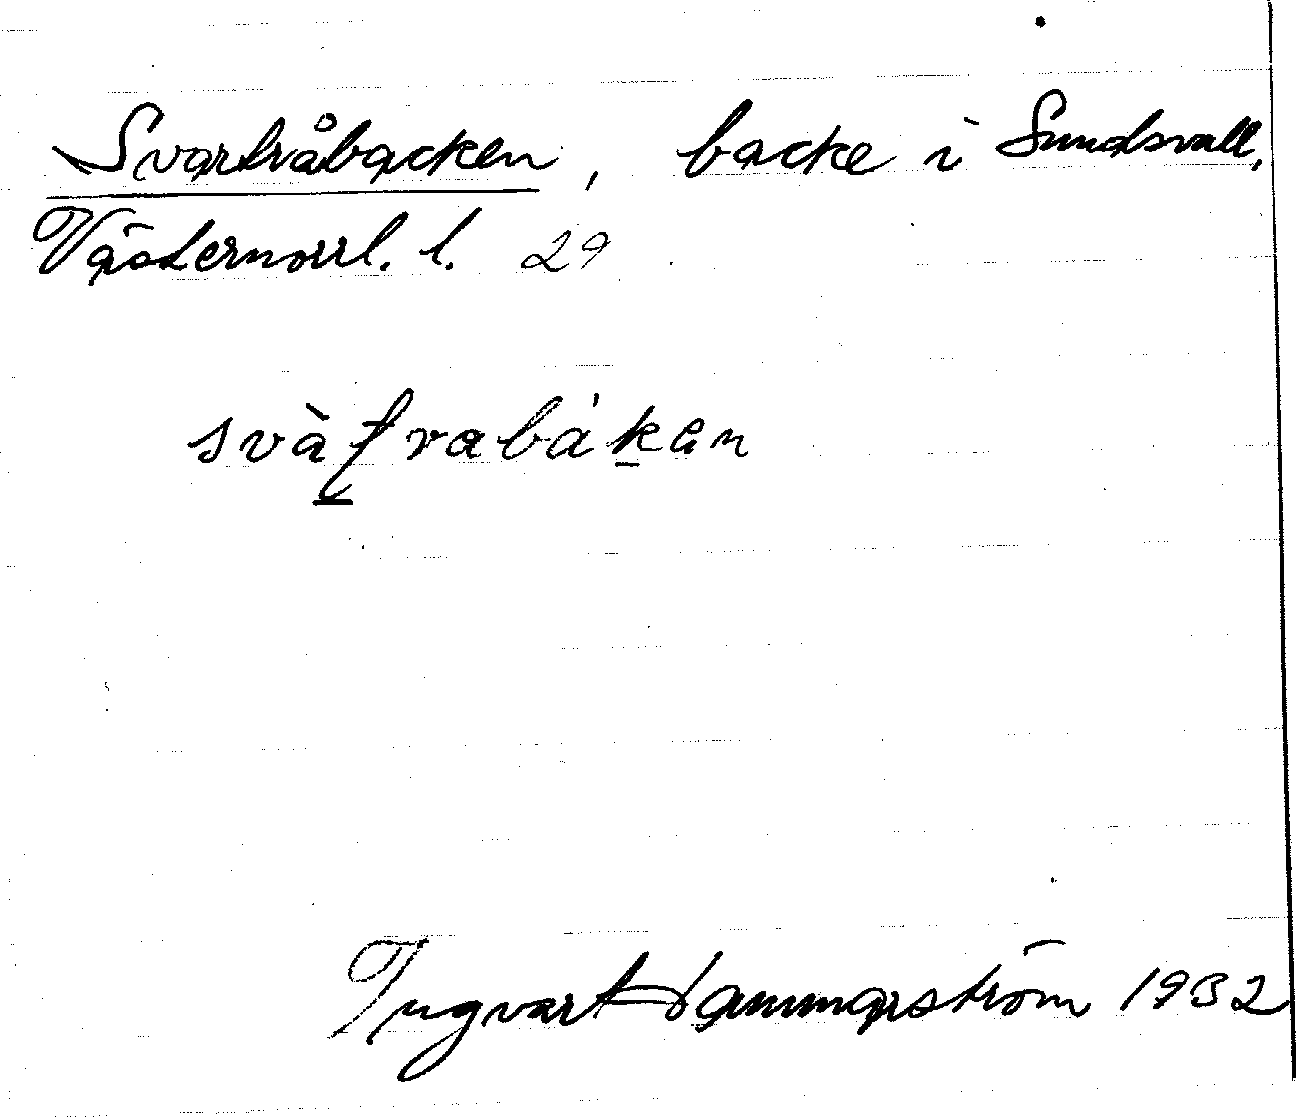 Svartvåbacken, backe i Sundsvall,
Västernorrl. l. 29
Ingvart Hammarström 1932